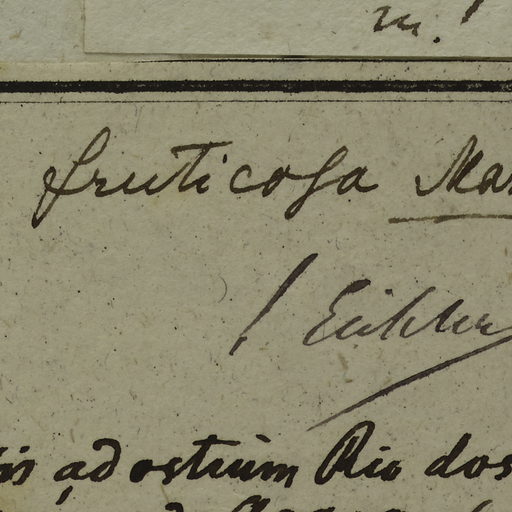 m.
fruticosa Mar
! Eichler
is ad ostium Rio dos